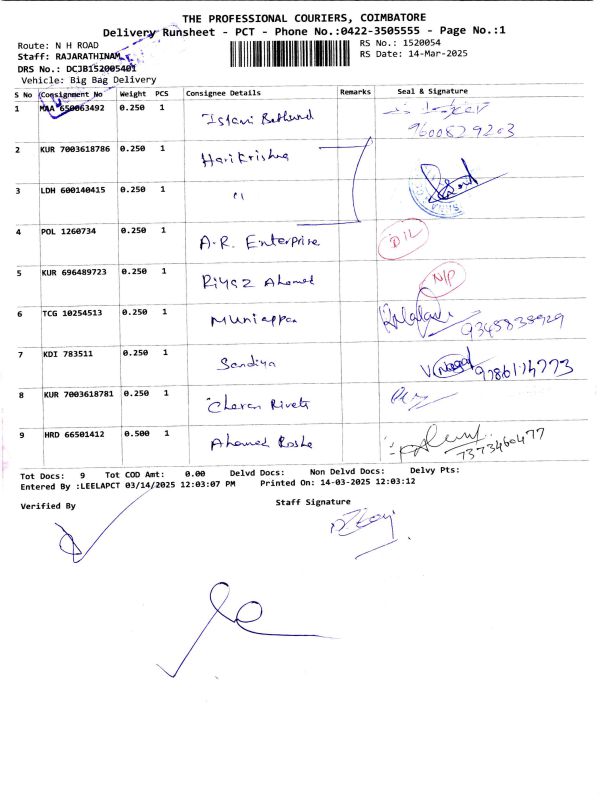 THE PROFESSIONAL COURIERS, COIMBATORE
Delivery Runsheet - PCT - Phone No.:0422-3505555 - Page No.:1
Route: N H ROAD
RS No.: 1520054
Staff: RAJARATHINAM
RS Date: 14-Mar-2025
DRS No.: DCJB152005401
Vehicle: Big Bag Delivery
S No Consignment No Weight PCS Consignee Details Remarks Seal & Signature
1 MAA 650063492 0.250 1
9600829203
2 KUR 7003618786 0.250 1 Harikrishna
3 LDH 600140415 0.250 1 "
4 POL 1260734 0.250 1 A.R. Enterprise D/L
5 KUR 696489723 0.250 1 Riyaz Ahamed N/P
6 TCG 10254513 0.250 1 Muniappan
7 KDI 783511 0.250 1 Sandiya
8 KUR 7003618781 0.250 1 Charan Rivets
9 HRD 66501412 0.500 1 Ahamed Roshe
7373460477
Tot Docs: 9 Tot COD Amt: 0.00 Delvd Docs: Non Delvd Docs: Delvy Pts:
Entered By :LEELAPCT 03/14/2025 12:03:07 PM Printed On: 14-03-2025 12:03:12
Verified By
Staff Signature